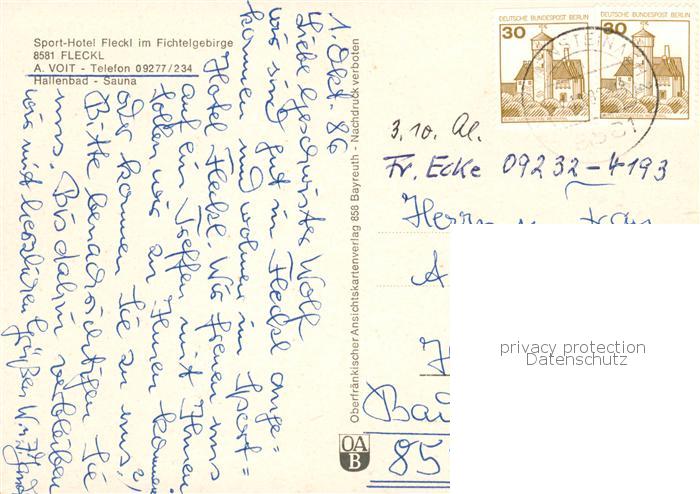 Sport-Hotel Fleckl im Fichtelgebirge
8581 FLECKL
A. VOIT - Telefon 09277/234
Hallenbad - Sauna
1. Okt. 86
Liebe Geschwister Wolf
wir sind gut in Fleckl ange=
kommen und wohnen im Sport=
Hotel Fleckl. Wir freuen uns
auf ein Treffen mit Ihnen.
Sollen wir zu Ihnen kommen
oder kommen Sie zu uns?
Bitte benachrichtigen Sie
uns. Bis dahin verbleiben
wir mit herzlichen Grüßen
Oberfränkischer Ansichtskartenverlag 858 Bayreuth - Nachdruck verboten
OA
B
DEUTSCHE BUNDESPOST BERLIN
30
DEUTSCHE BUNDESPOST BERLIN
30
8591
3.10. Al.
Fr. Ecke 09232-4193
Herrn u. Frau
A
85
privacy protection
Datenschutz